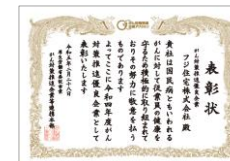 表彰状
がん対策推進優良企業
フジ住宅株式会社 殿
貴社は国民病ともいわれる
がんに対して従業員の健康を
守るため積極的に取り組まれて
おりその努力に敬意を払う
ものであります
ここに令和四年度がん
対策推進優良企業として
表彰いたします
令和五年二月二十八日
がん対策推進企業等連携本部